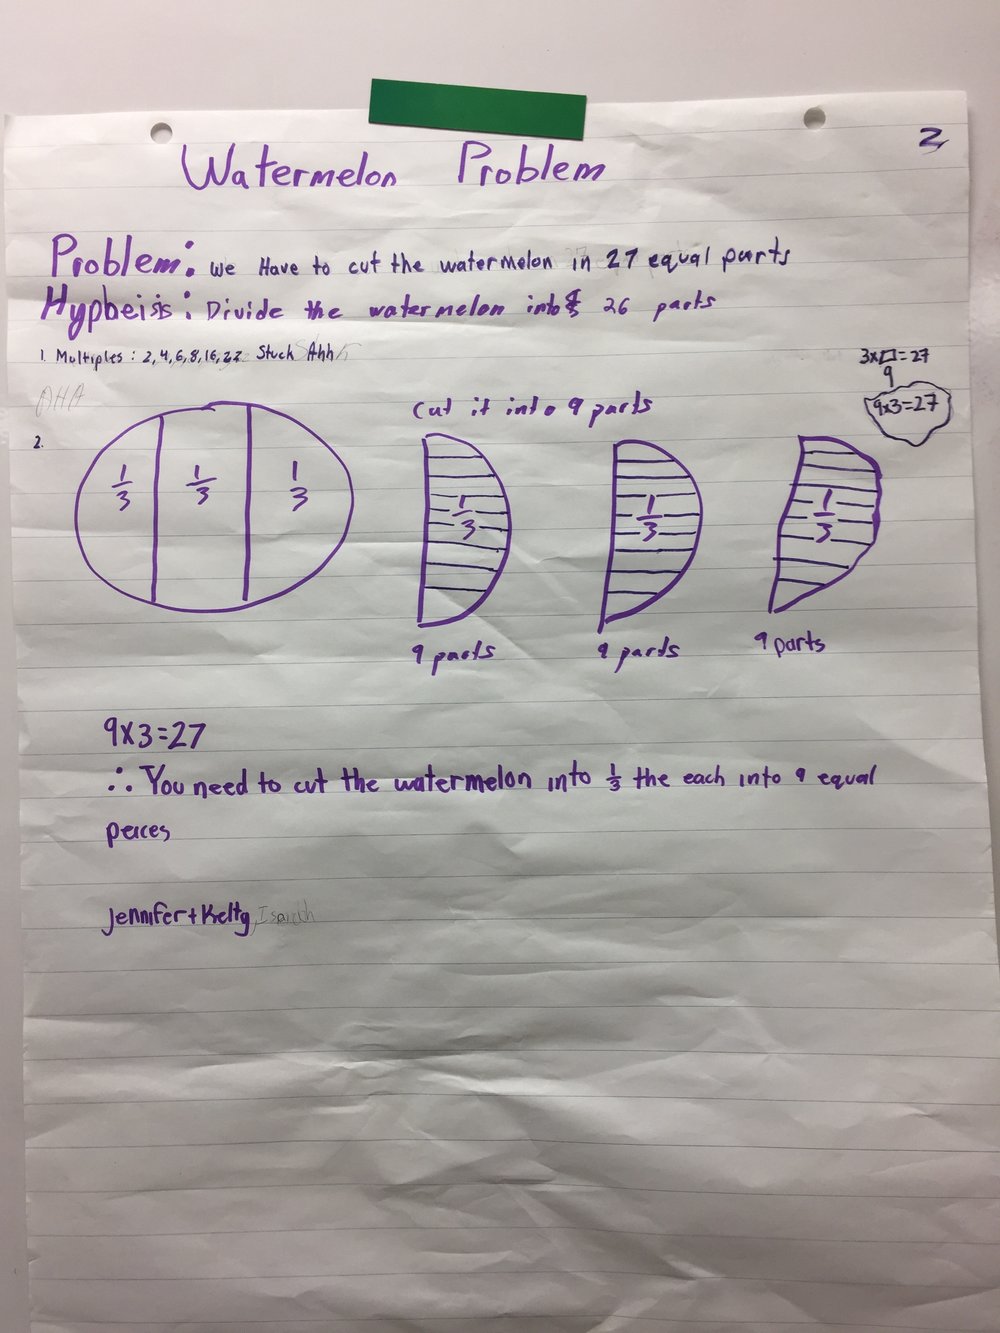 2
Watermelon Problem
Problem: We Have to cut the watermelon in 27 equal parts
Hypbeisis: Divide the watermelon into 26 parts
1. Multiples: 2, 4, 6, 8, 16, 22 Stuck Ahh
3x□=27
9
9x3=27
AHA
Cut it into 9 parts
2.
1/3 1/3 1/3 1/3 1/3 1/3
9 parts 9 parts 9 parts
9x3=27
∴ You need to cut the watermelon into 1/3 the each into 9 equal
peices
Jennifer + Kelty,